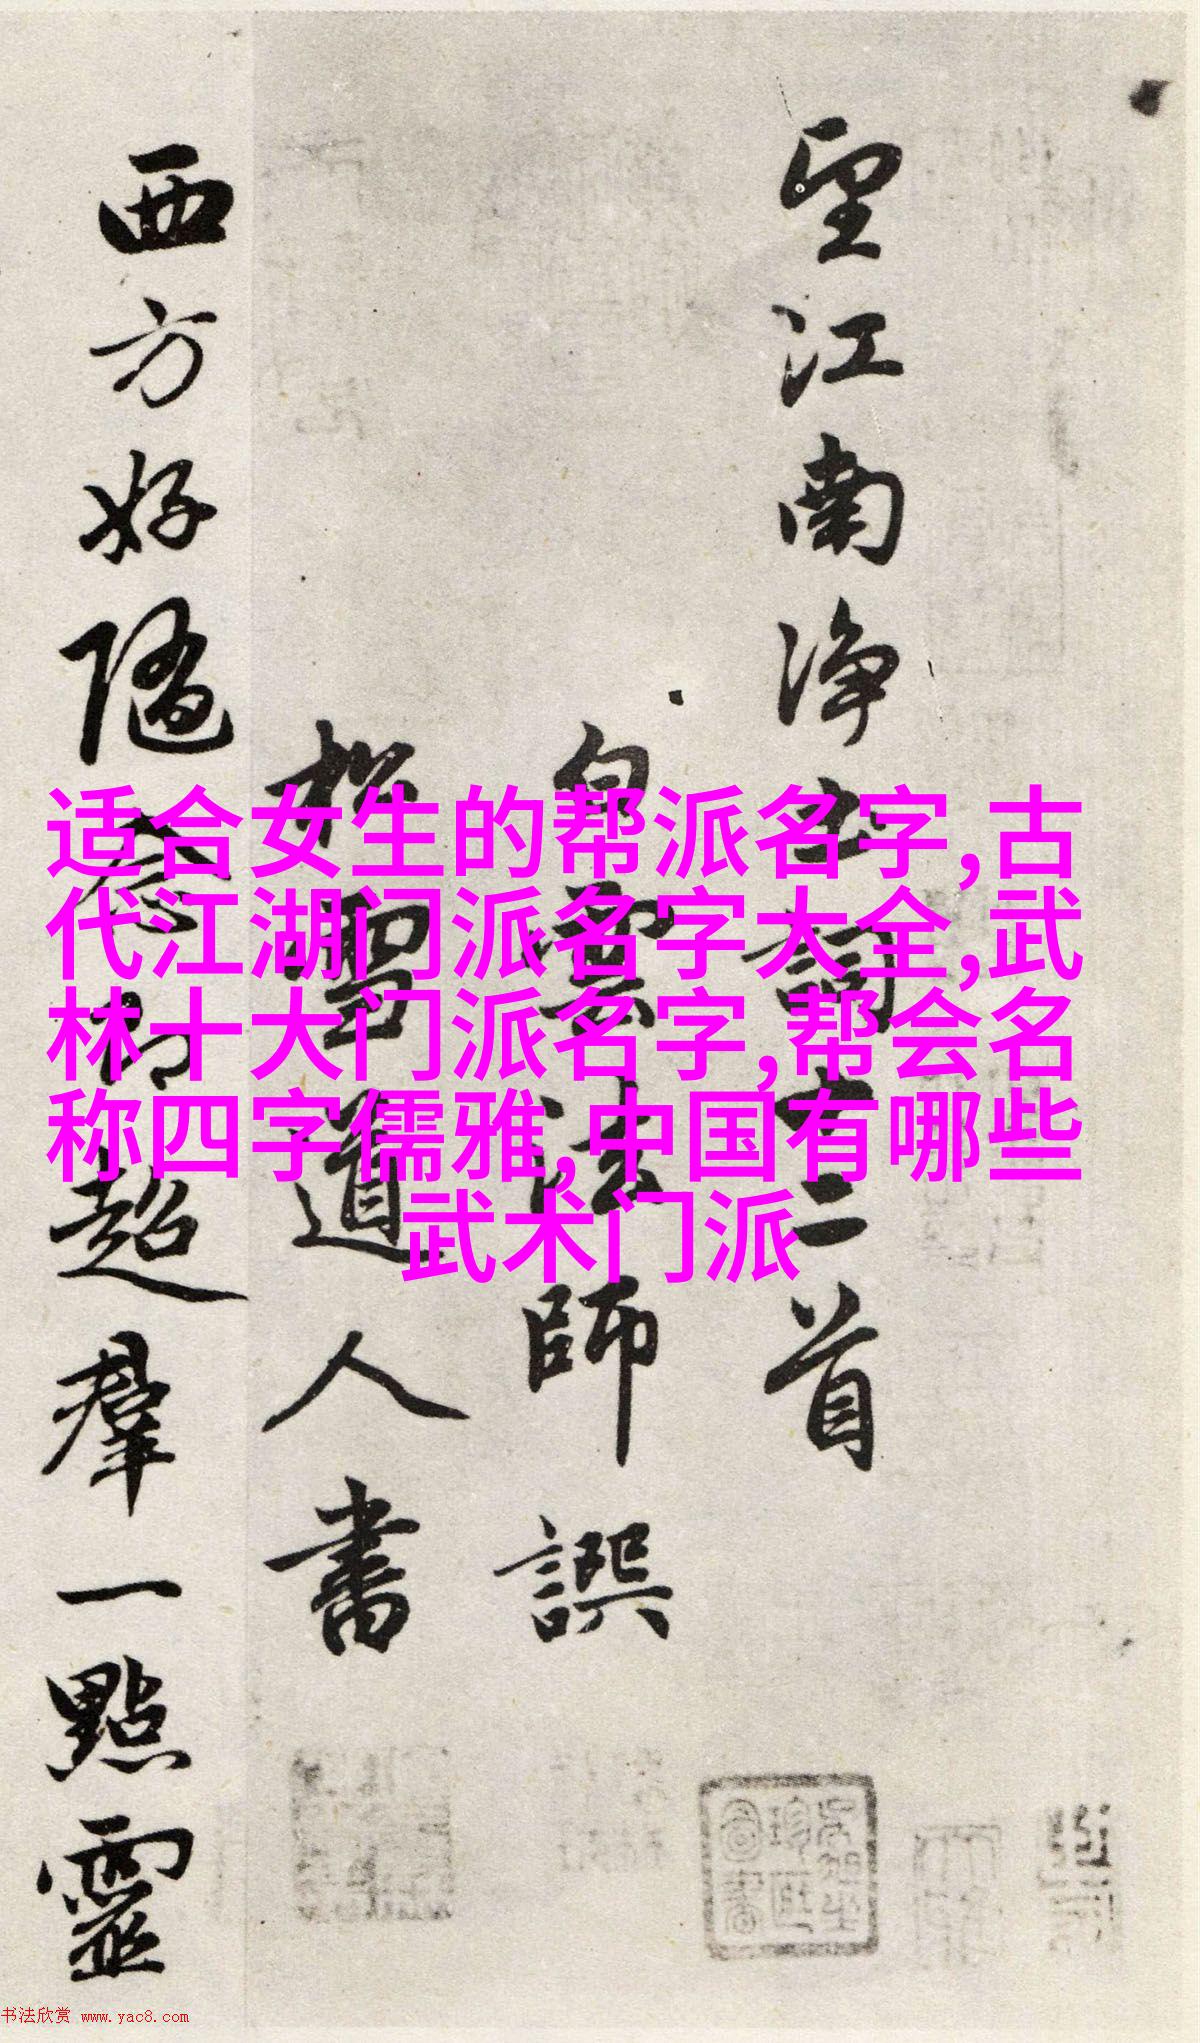 望江南净土詞十二首
白雲法師譔
松雪道人書
西方好隨念即超羣一點靈
适合女生的帮派名字,古
代江湖门派名字大全,武
林十大门派名字,帮会名
称四字儒雅,中国有哪些
武术门派
书法欣赏 www.yac8.com